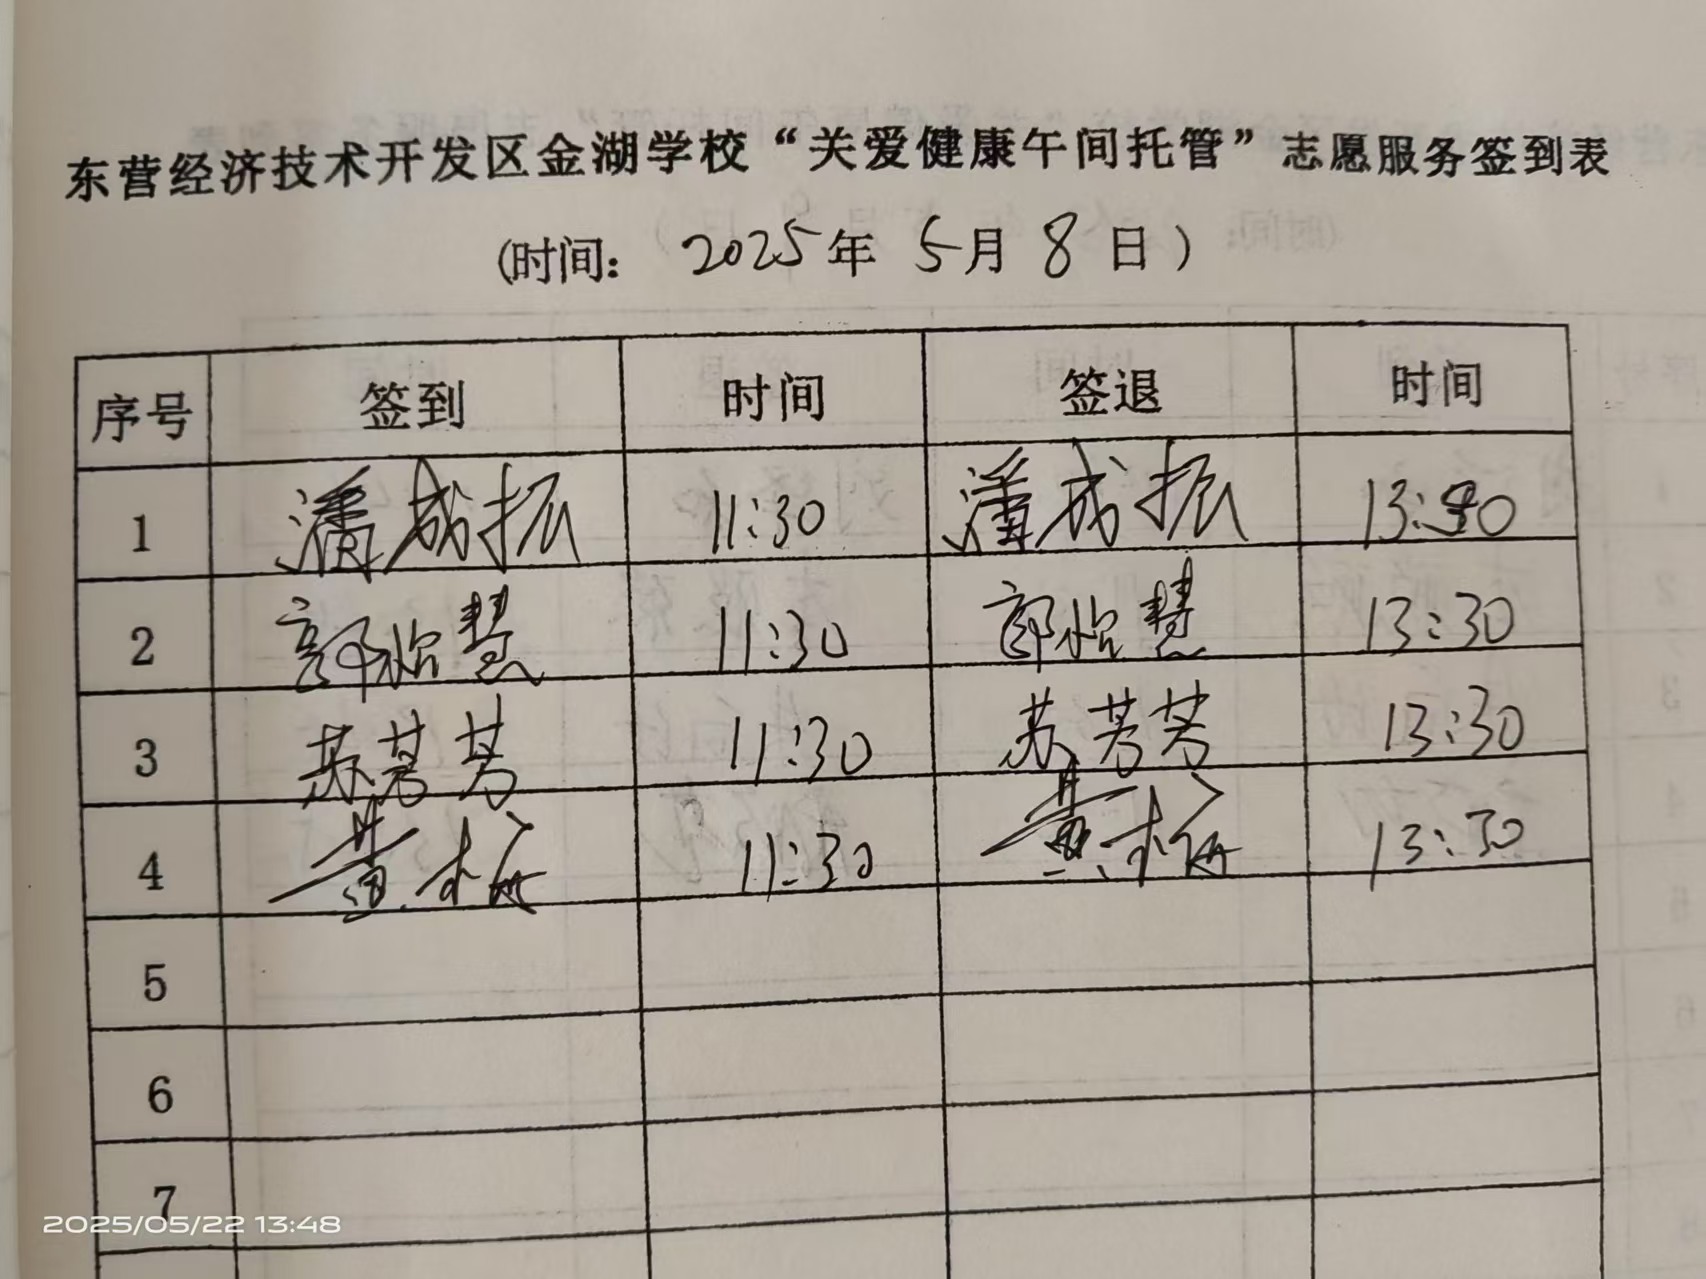 东营经济技术开发区金湖学校“关爱健康午间托管”志愿服务签到表
(时间: 2025年 5月 8日)
序号 签到 时间 签退 时间
1 潘成振 11:30 潘成振
2 郭怡慧 11:30 郭怡慧 13:30
3 苏芳芳 11:30 苏芳芳 13:30
4 黄梅 11:30 黄梅 13:30
5
6
7
2025/05/22 13:48